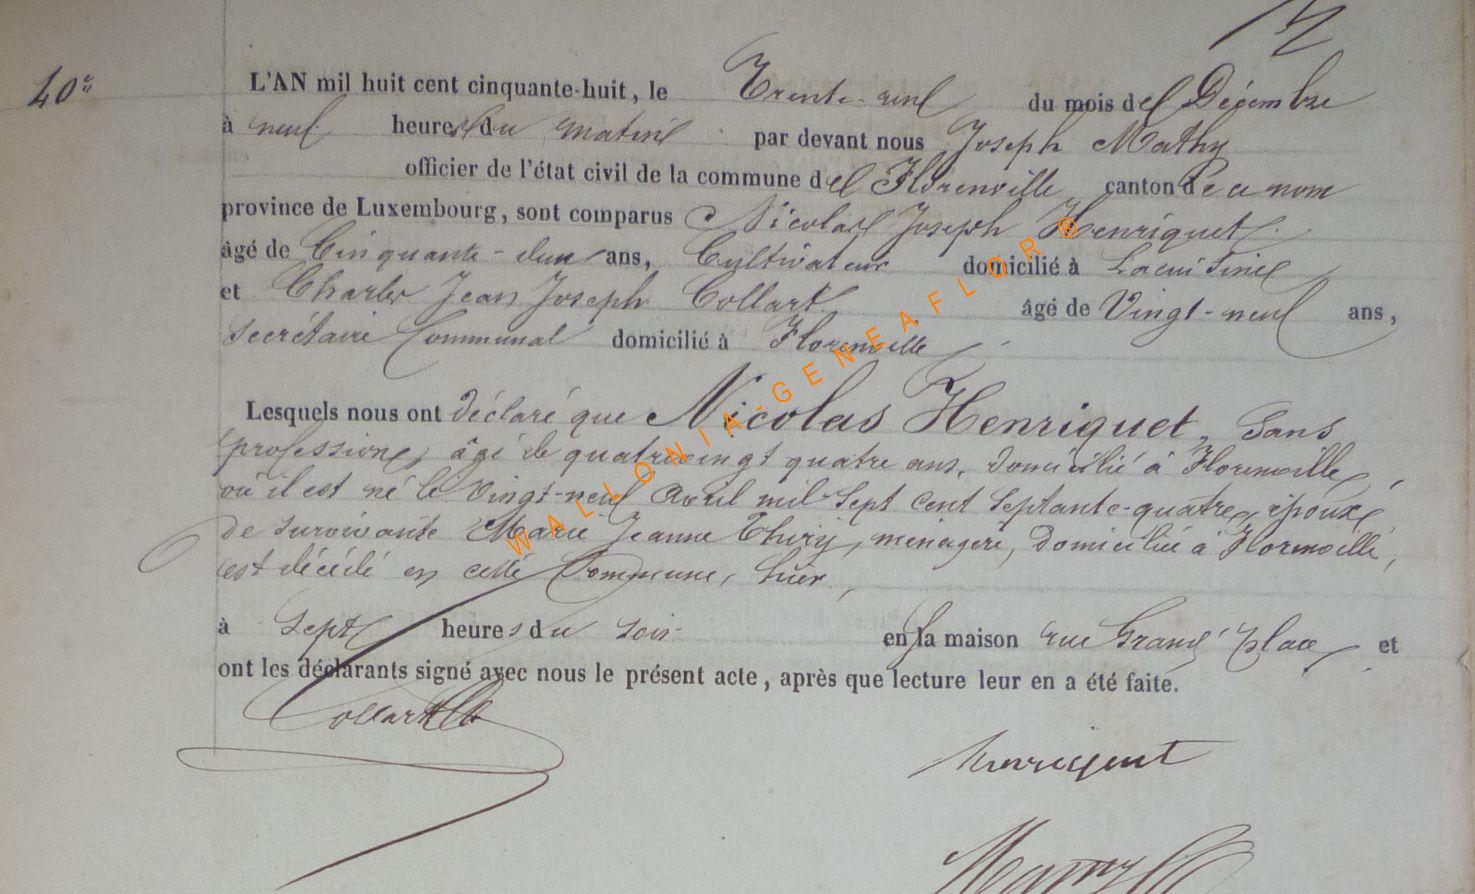 40e
L'AN mil huit cent cinquante-huit, le Trente-un du mois de Décembre
à neuf heures du matin par devant nous Joseph Mathy
officier de l'état civil de la commune de Florenville canton de ce nom
province de Luxembourg, sont comparus Nicolas Joseph Henriquet
âgé de Cinquante-deux ans, Cultivateur domicilié à Lacuisine
et Charles Jean Joseph Collart âgé de Vingt-neuf ans,
secrétaire Communal domicilié à Florenville
Lesquels nous ont déclaré que Nicolas Henriquet, Sans
profession, âgé de quatrevingt quatre ans, domicilié à Florenville,
où il est né le Vingt-neuf Avril mil Sept Cent Septante-quatre, époux
de survivante Marie Jeanne Thiry, ménagère, domiciliée à Florenville,
est décédé en cette Commune, hier,
à Sept heures du soir en la maison rue Grand'place, et
ont les déclarants signé avec nous le présent acte, après que lecture leur en a été faite.
Collart
henriquet
Mathy
WALLONIA-GENEAFLOR®